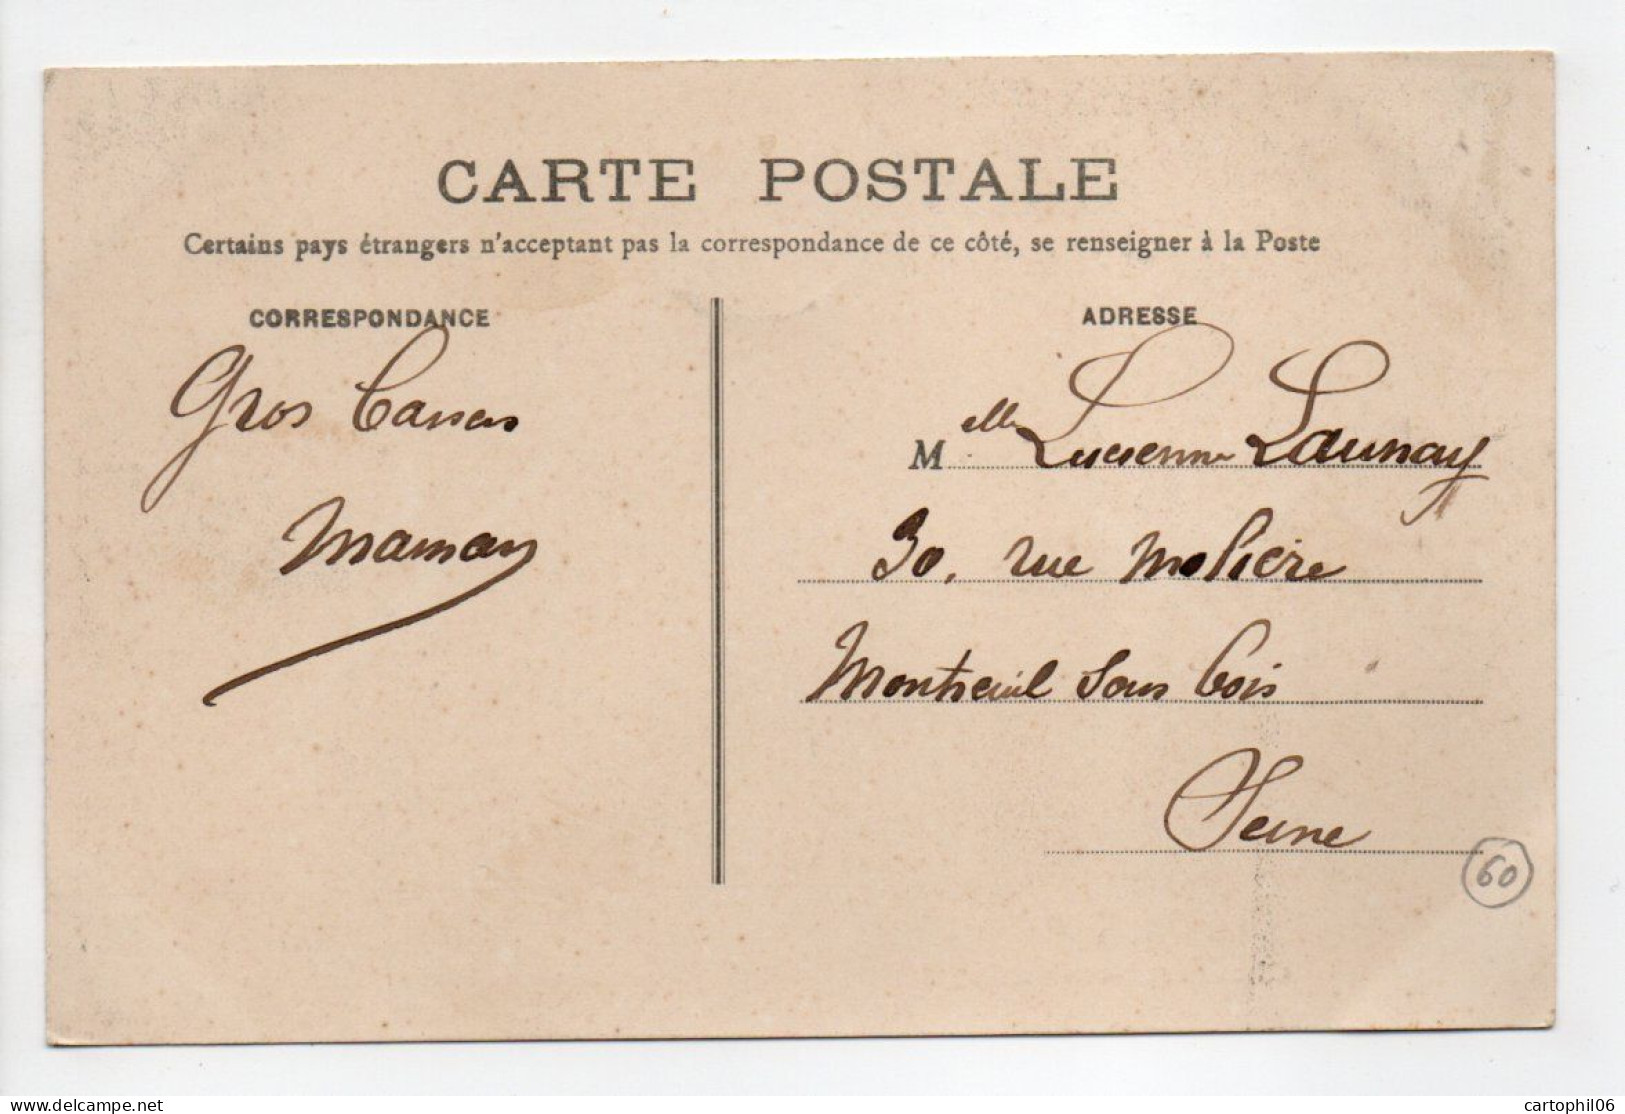 CARTE POSTALE
Certains pays étrangers n'acceptant pas la correspondance de ce côté, se renseigner à la Poste
CORRESPONDANCE
ADRESSE
Gros baisers
Maman
Melle Lucienne Launay
30, rue Molière
Montreuil sous bois
Seine
60
delcampe.net
cartophil06